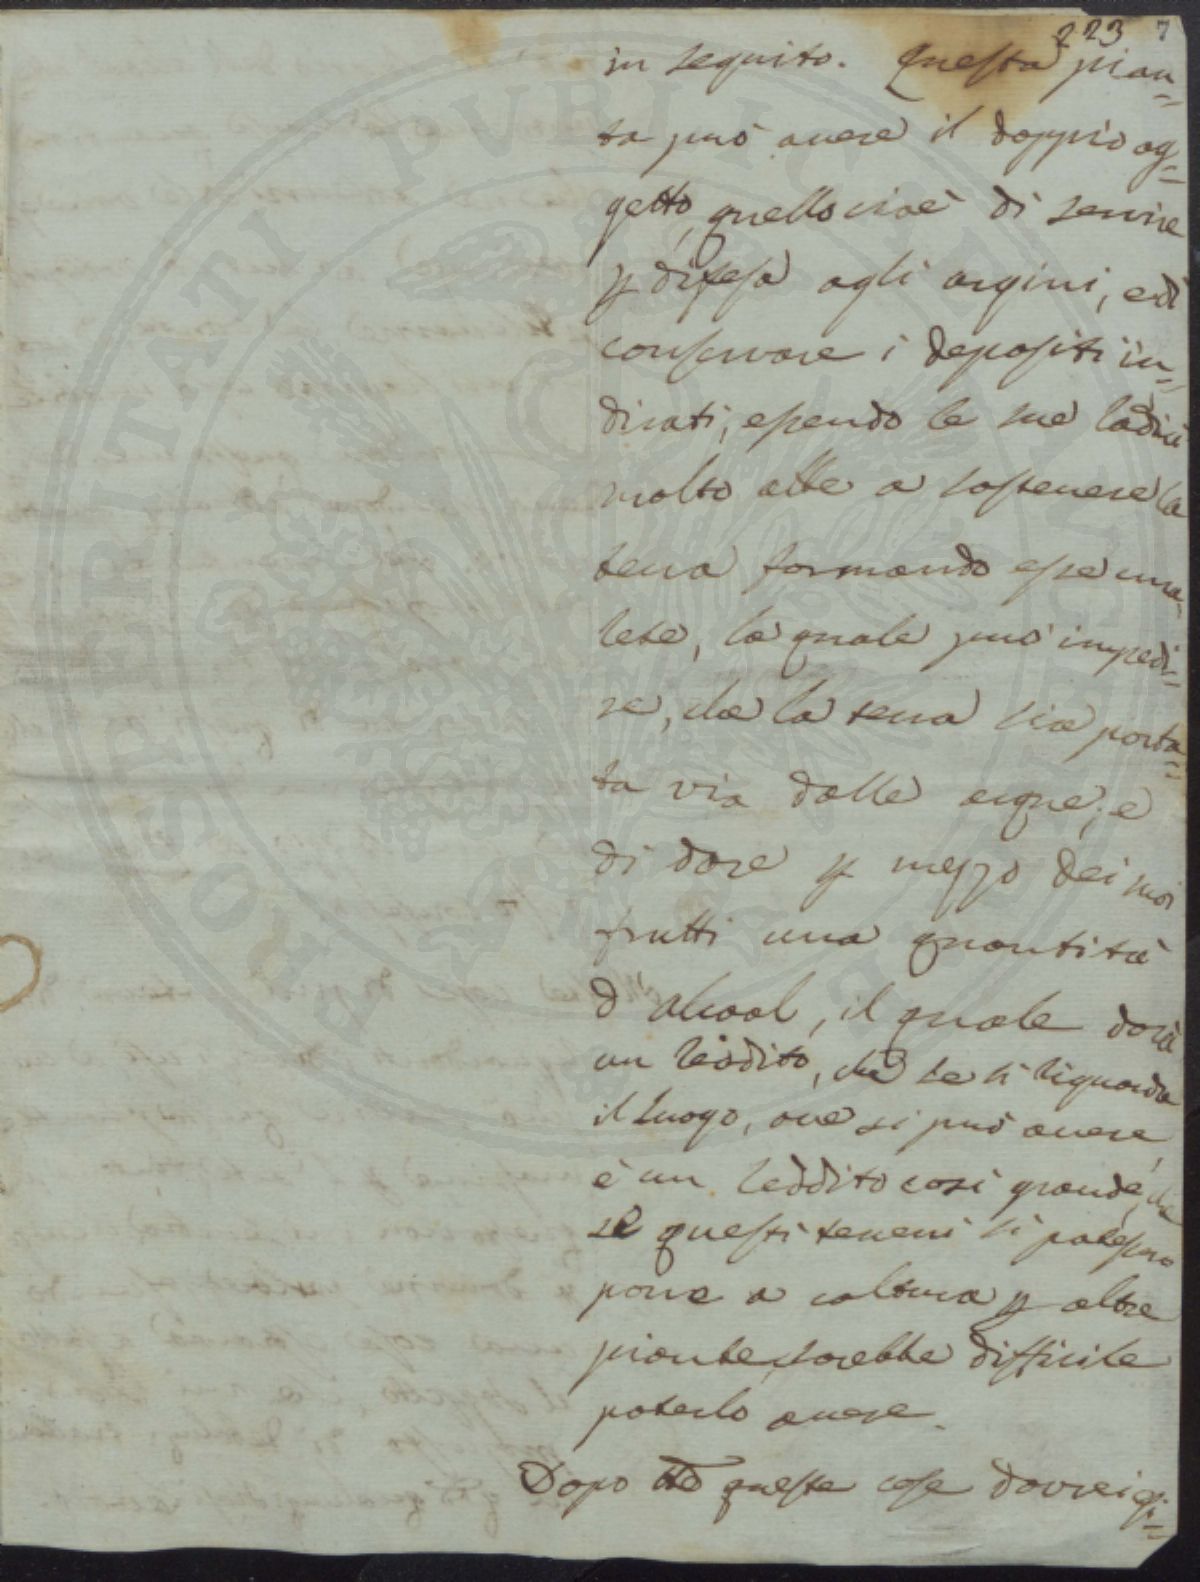 223 7
in seguito. Questa pian=
ta può avere il doppio og=
getto, quello cioè di servire
p difesa agli argini, e di
conservare i depositi in=
dicati, essendo le sue radici
molto atte a sostenere la
terra formando esse una
rete, la quale può impedi=
re, che la terra sia porta=
ta via dalle acque; e
di dare p mezzo dei suoi
frutti una quantità
d'alcool, il quale darà
un reddito, che se si riguarda
il luogo, ove si può avere,
è un reddito così grande, che
se questi terreni si potessero
porre a coltura p altre
piante, sarebbe difficile
poterlo avere.
Dopo tte queste cose dovrei
POSTERITATI PUBLICAE